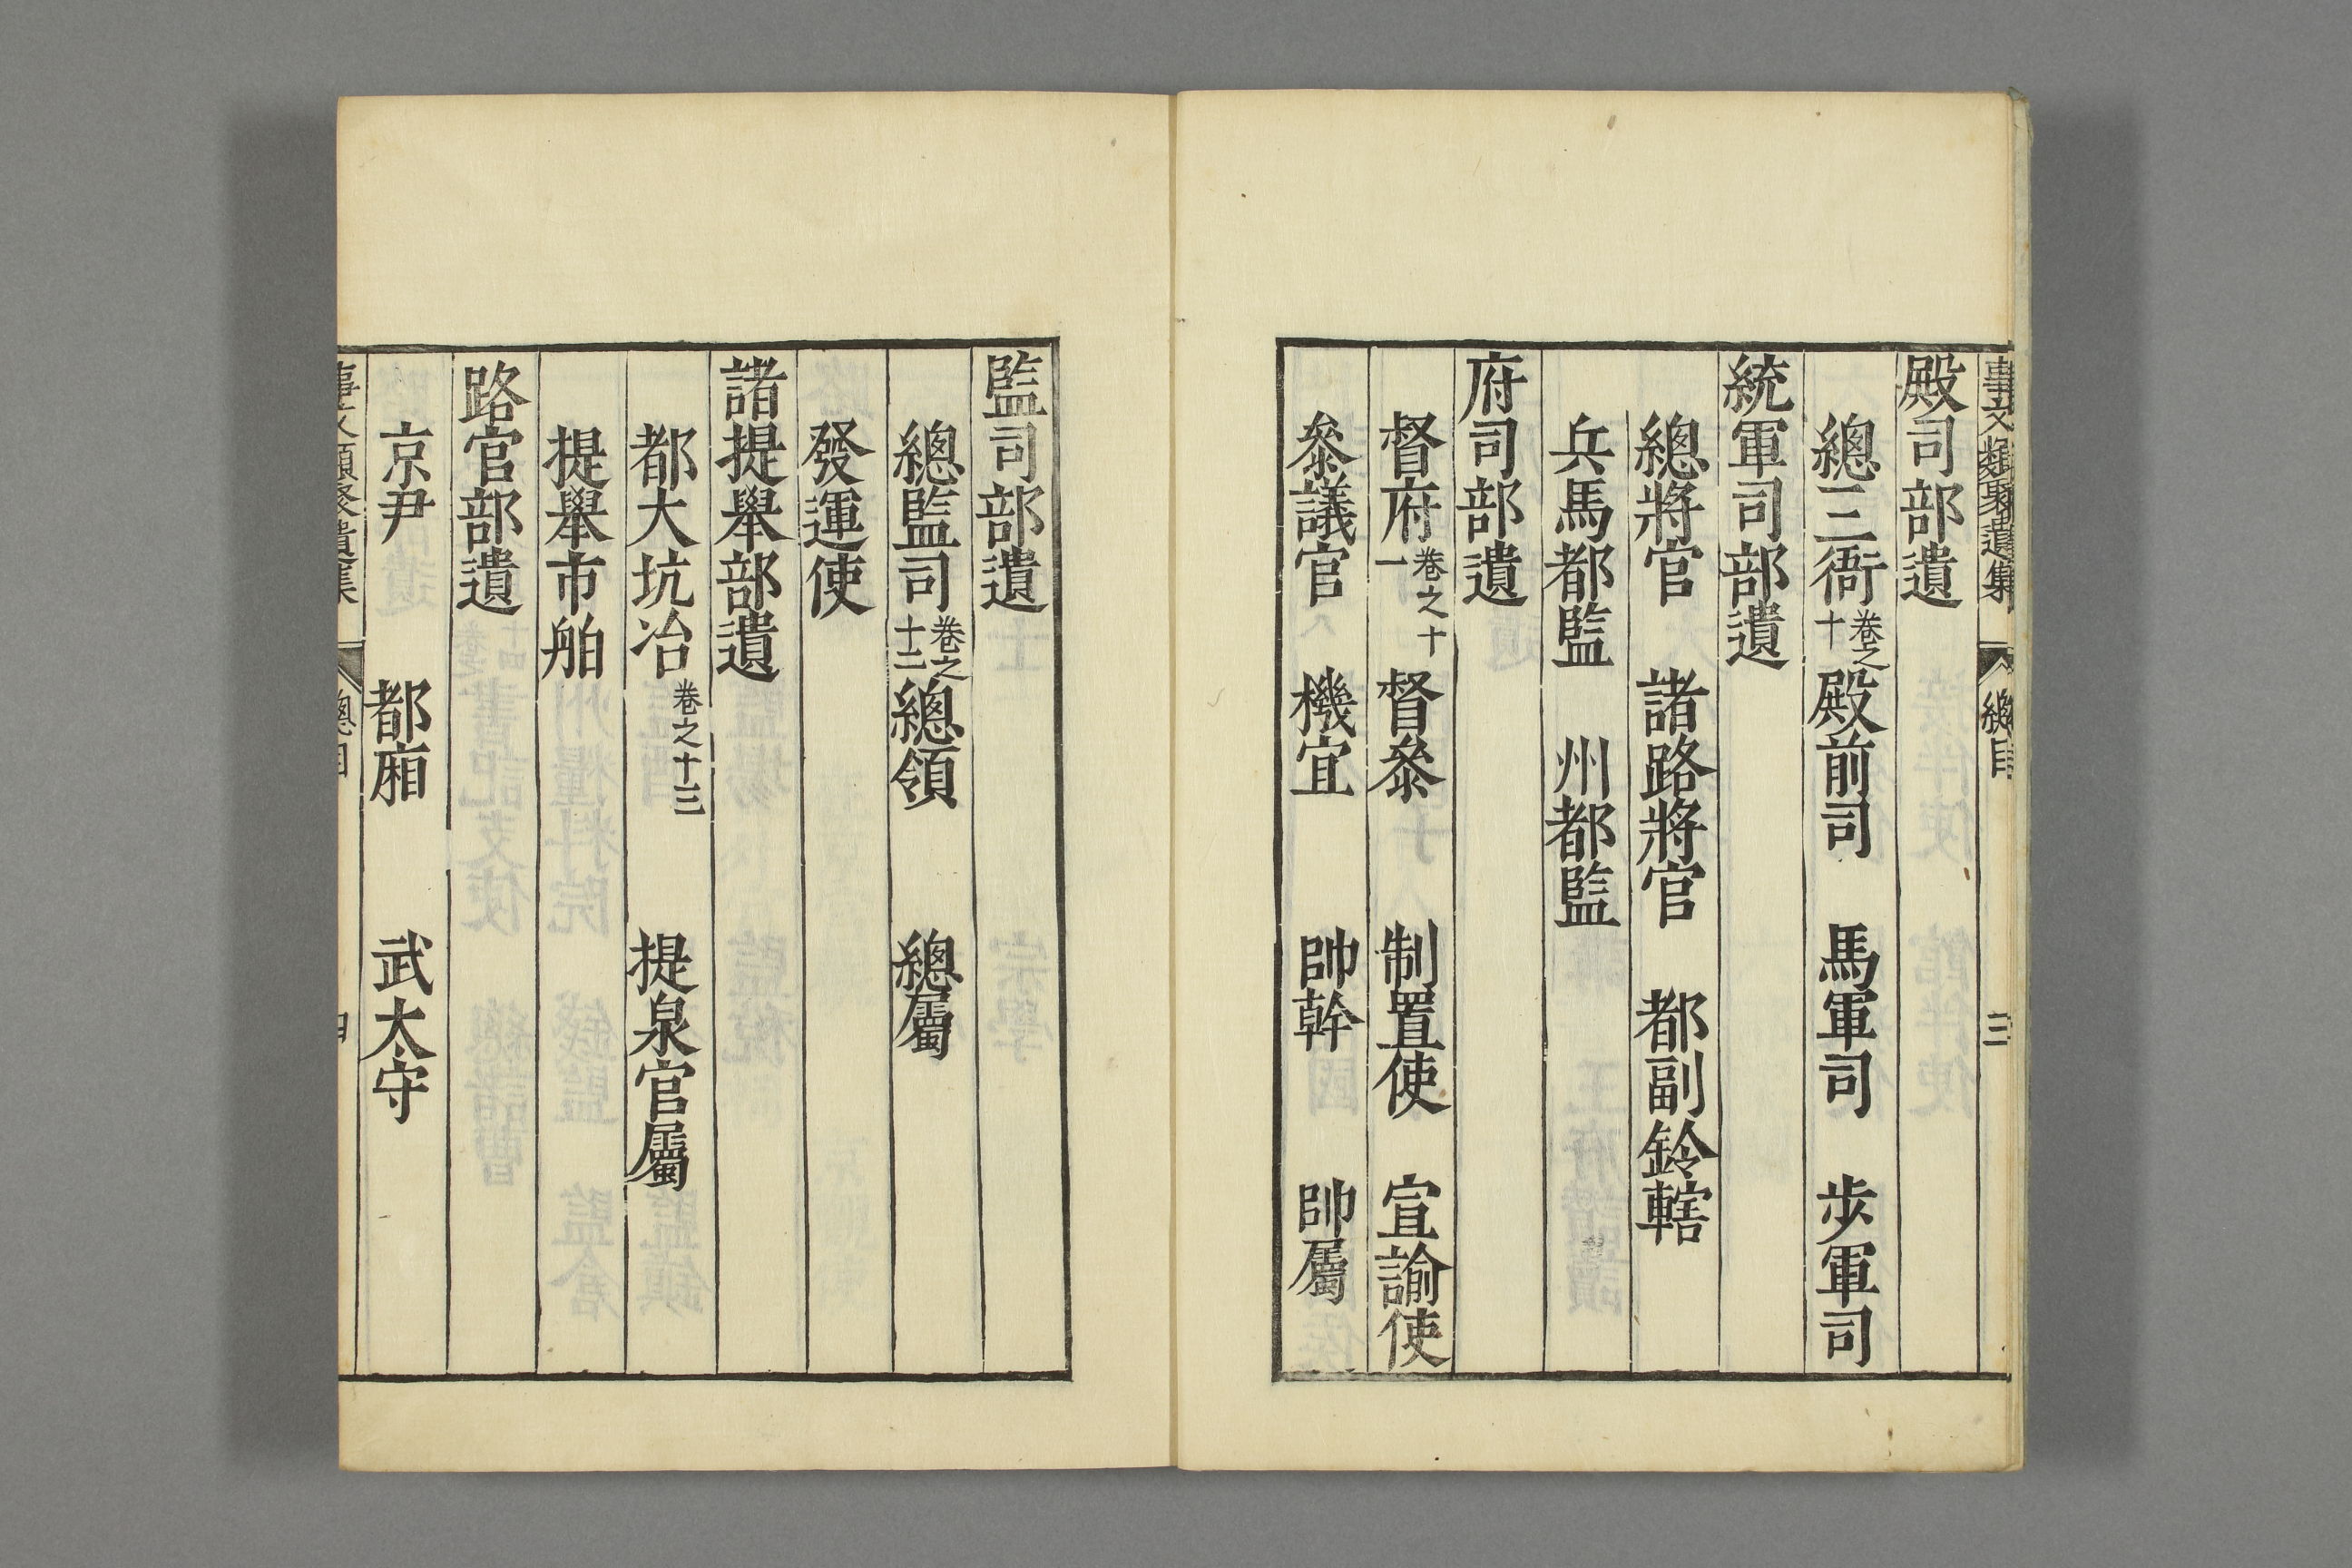 事文類聚遺集 總目 三
殿司部遺
總三衙 卷之十 殿前司 馬軍司 步軍司
統軍司部遺
總將官 諸路將官 都副鈐轄
兵馬都監 州都監
府司部遺
督府 卷之十一 督叅 制置使 宣諭使
叅議官 機宜 帥幹 帥屬
監司部遺
總監司 卷之十二 總領 總屬
發運使
諸提舉部遺
都大坑冶 卷之十三 提泉官屬
提舉市舶
路官部遺
京尹 都廂 武太守
事文類聚遺集 總目 四